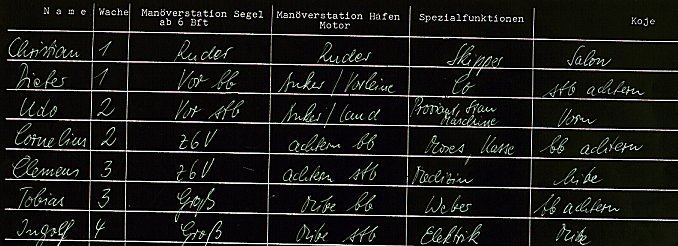 Name Wache Manöverstation Segel ab 6 Bft Manöverstation Hafen Motor Spezialfunktionen Koje
Christian 1 Ruder Ruder Skipper Salon
Dieter 1 Vor bb Anker/Vorleine Co stb achtern
Udo 2 Vor stb Anker/Land Proviant, Maschine Vorn
Cornelius 2 ZbV achtern bb Moses, Kasse bb achtern
Clemens 3 ZbV achtern stb Medizin
Tobias 3 Groß Mitte bb bb achtern
Ingolf 4 Groß Mitte stb Elektrik Mitte